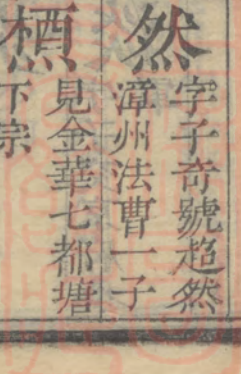 然
字子奇號趋然
漳州法曹一子
槱
見金華七都塘
下宗